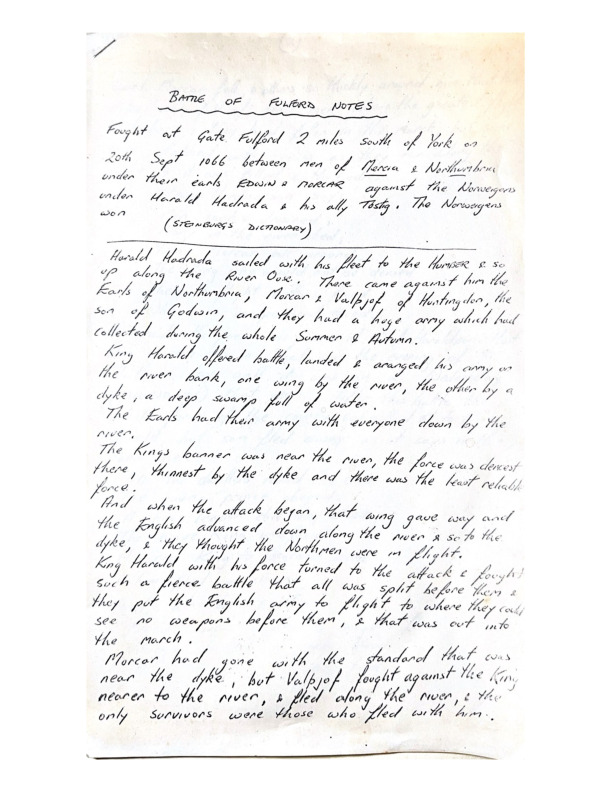 BATTLE OF FULFORD NOTES
Fought at Gate Fulford 2 miles south of York on
20th Sept 1066 between men of Mercia & Northumbria
under their earls EDWIN & MORCAR against the Norwegens
under Harald Hadrada & his ally Tostig. The Norwegens
won
(STEINBURGS DICTIONARY)
Harald Hadrada sailed with his fleet to the HUMBER & so
up along the River Ouse. There came against him the
Earls of Northumbria, Morcar & Valpjof of Huntingdon, the
son of Godwin, and they had a huge army which had
collected during the whole Summer & Autumn.
King Harald offered battle, landed & aranged his army on
the river bank, one wing by the river, the other by a
dyke, a deep swamp full of water.
The Earls had their army with everyone down by the
river.
The Kings banner was near the river, the force was densest
there, thinnest by the dyke and there was the least reliable
force.
And when the attack began, that wing gave way and
the English advanced down along the river & so to the
dyke, & they thought the Northmen were in flight.
King Harald with his force turned to the attack & fought
such a fierce battle that all was split before them &
they put the English army to flight to where they could
see no weapons before them, & that was out into
the march.
Morcar had gone with the standard that was
near the dyke, but Valpjof fought against the King
nearer to the river, & fled along the river, & the
only survivors were those who fled with him.